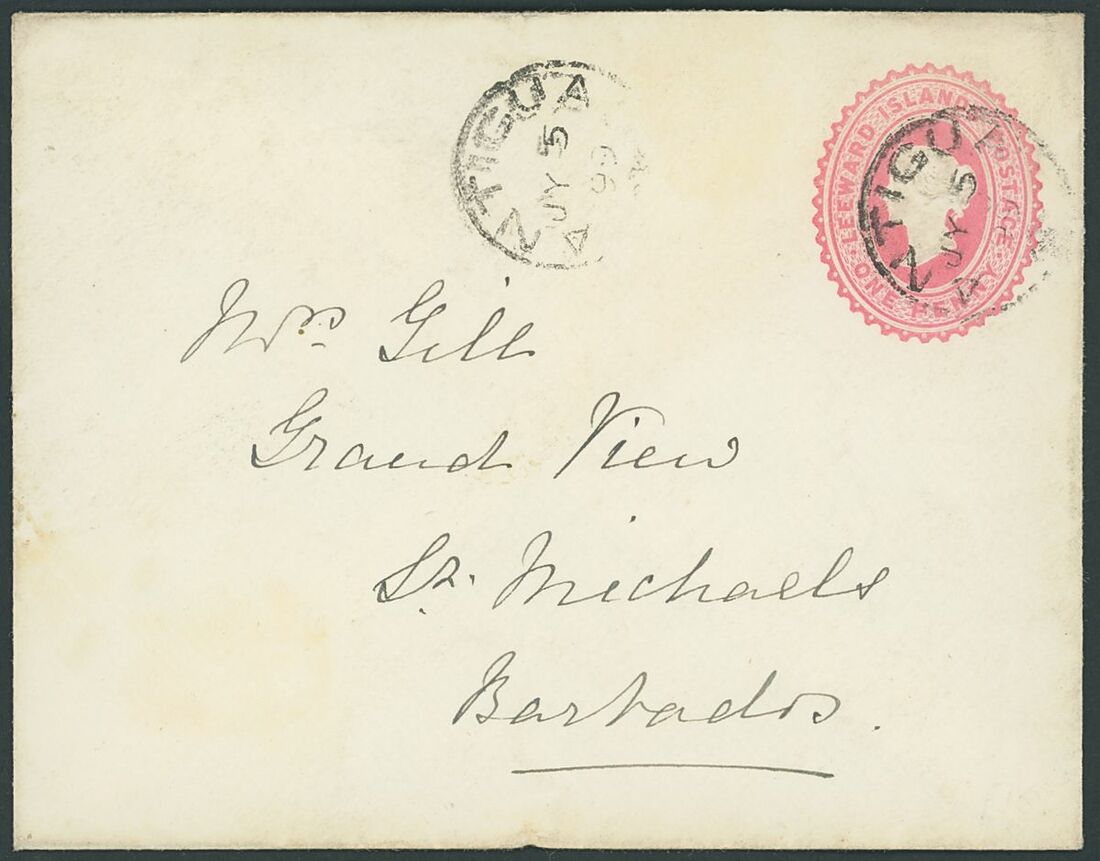 ANTIGUA
JY 5
99
LEEWARD ISLANDS POSTAGE
ONE PENNY
ANTIGUA
JY 5
Mrs. Gill
Grand View
St. Michaels
Barbados.